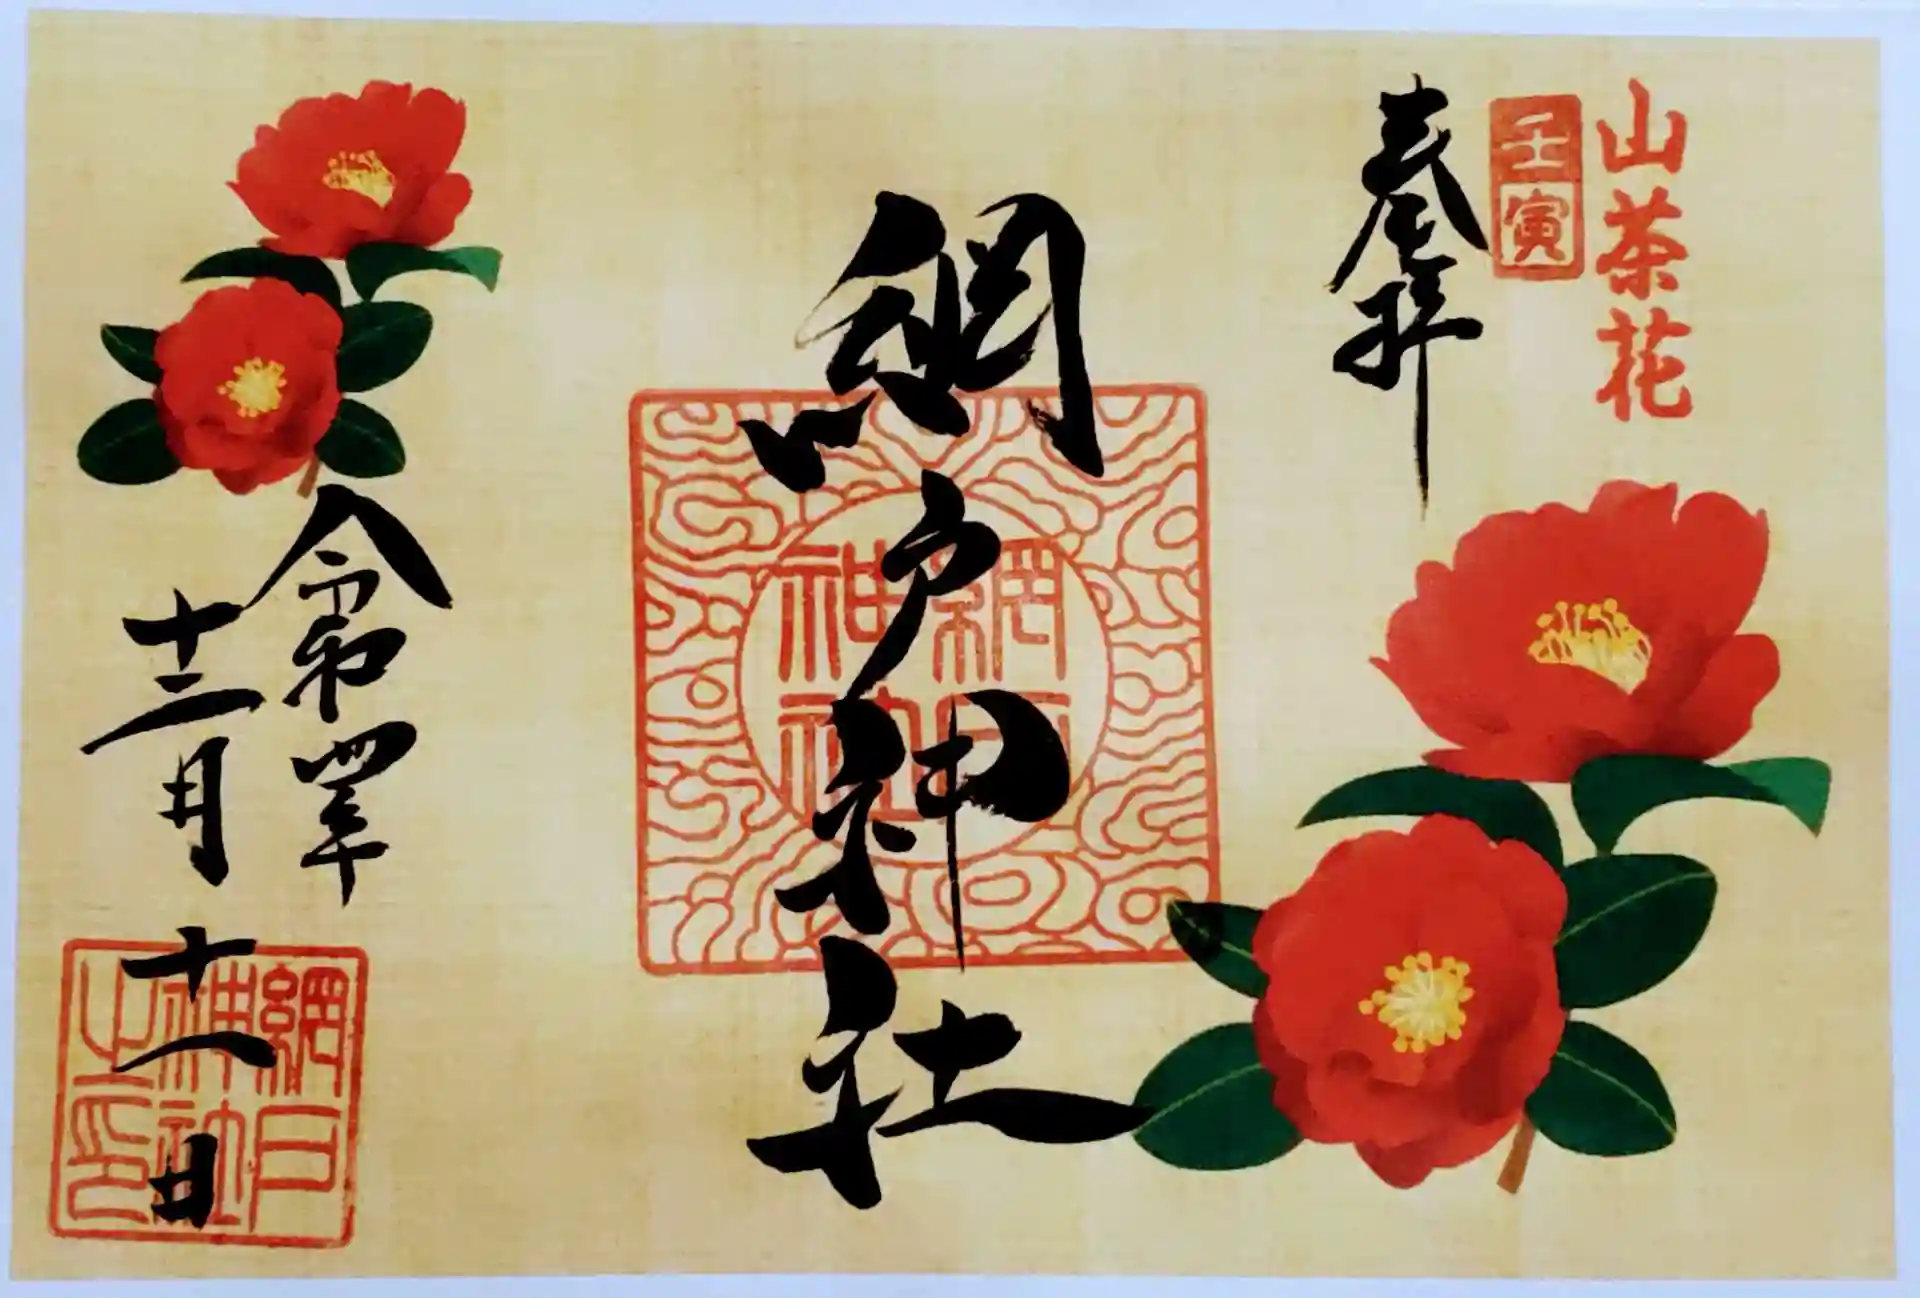 山茶花
壬寅
奉拝
網戸神社
網戸
神社
令和四年
十二月
十一日
網戸
神社
之印